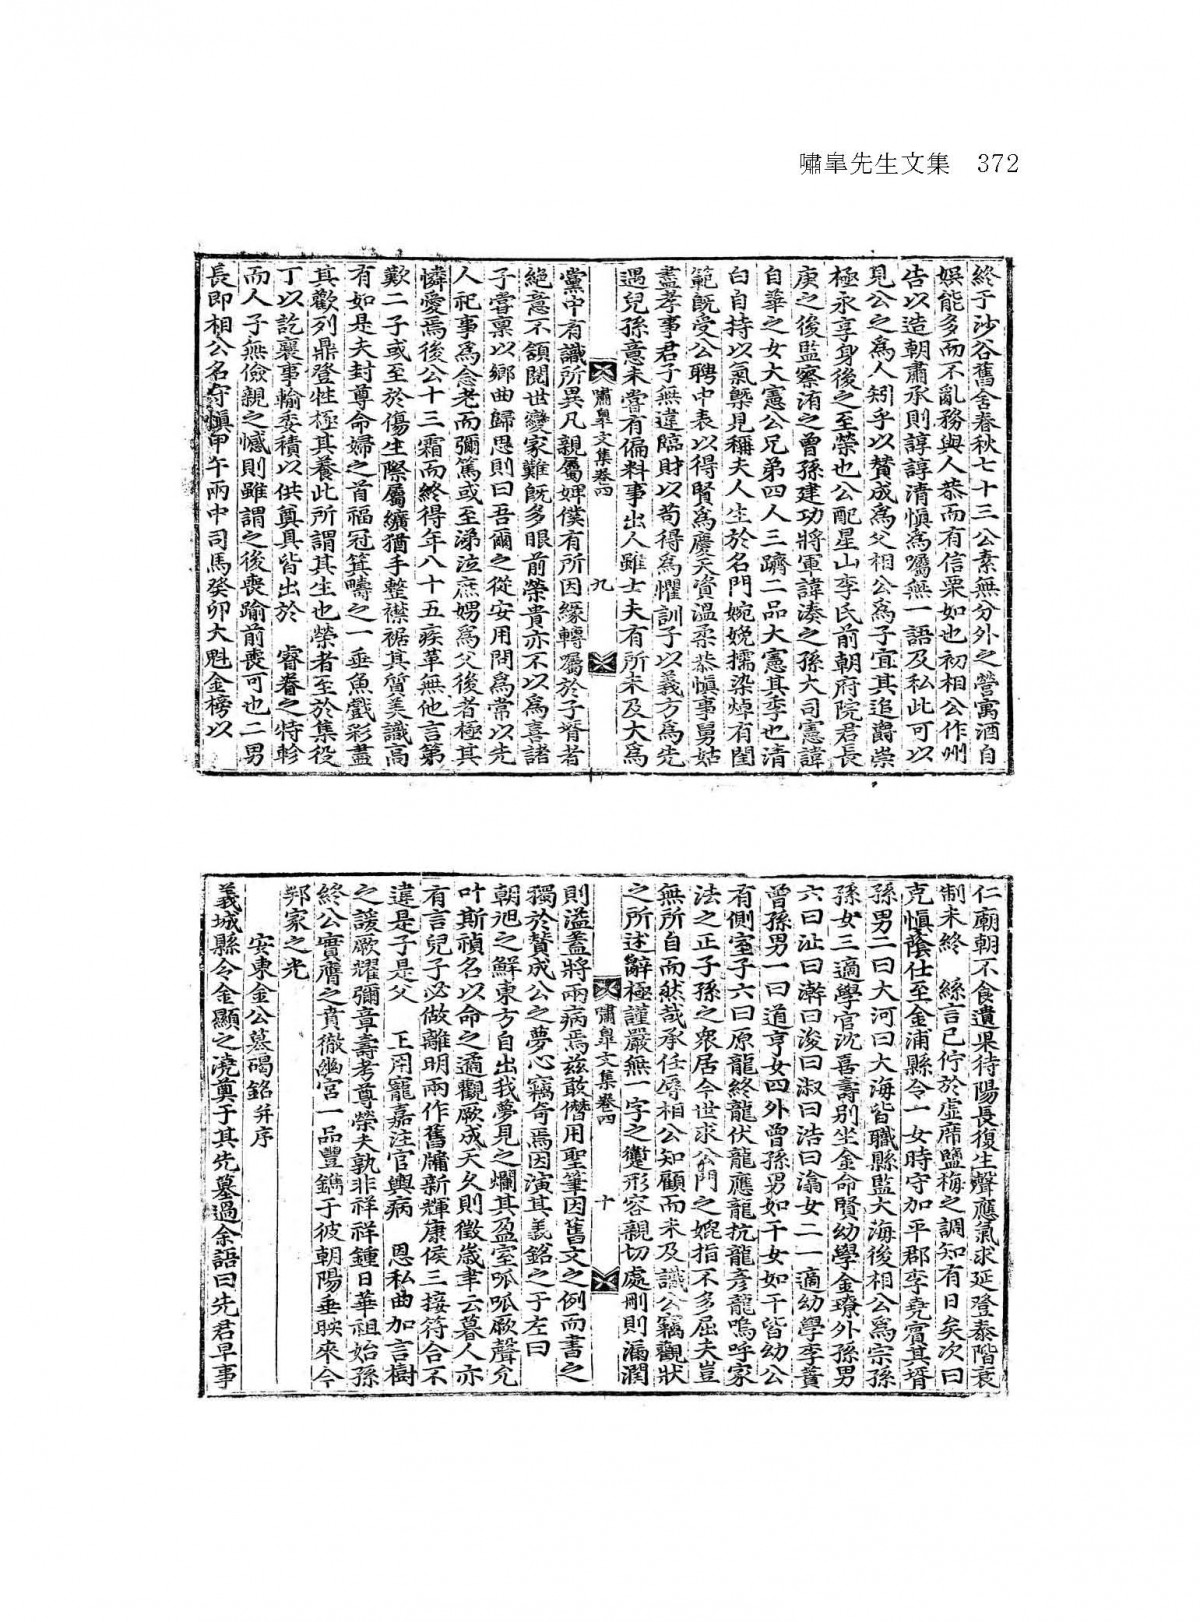 嘯皐先生文集 372
終于沙谷舊舍春秋七十三公素無分外之營寓酒自
娛能多而不亂務與人恭而有信栗如也初相公作州
告以造朝肅承則諄諄清愼爲囑無一語及私此可以
見公之爲人矧乎以贊成爲父相公爲子宜其追爵崇
極永享身後之至榮也公配星山李氏前朝府院君長
庚之後監察洧之曾孫建功將軍諱湊之孫大司憲諱
自華之女大憲公兄弟四人三躋二品大憲其季也清
白自持以氣槩見稱夫人生於名門婉娩擩染焯有閨
範旣受公聘中表以得賢爲慶天資溫柔恭愼事舅姑
盡孝事君子無違臨財以苟得爲懼訓子以義方爲先
遇兒孫意未嘗有偏料事出人雖士夫有所未及大爲
嘯皐文集卷四 九
黨中有識所異凡親屬婢僕有所因緣轉屬於子胥者
絕意不頷閱世變家難旣多眼前榮貴亦不以爲喜諸
子嘗稟以鄉曲歸思則曰吾爾之從安用問爲常以先
人祀事爲念老而彌篤或至涕泣庶娚爲父後者極其
憐愛焉後公十三霜而終得年八十五疾革無他言第
歎二子或至於傷生際屬纊猶手整襟裾其質美識高
有如是夫封尊命婦之首福冠箕疇之一垂魚戲彩盡
其歡列鼎登牲極其養此所謂其生也榮者至於集役
丁以訖襄事輸委積以供奠具皆出於 睿眷之特軫
而人子無儉親之憾則雖謂之後喪踰前喪可也二男
長即相公名守愼甲午兩中司馬癸卯大魁金榜以
仁廟朝不食遺果待陽長復生聲應氣求延登泰階衰
制未終 絲言已佇於虛席鹽梅之調知有日矣次曰
克愼蔭仕至金浦縣令一女時守加平郡李堯賓其壻
孫男二曰大河曰大海皆職縣監大海後相公爲宗孫
孫女三適學官沈喜壽別坐金命賢幼學金瞭外孫男
六曰沚曰澣曰浚曰淑曰浩曰潝女二一適幼學李蕡
曾孫男一曰道亨女四外曾孫男如干女如干皆幼公
有側室子六曰原龍終龍伏龍應龍抗龍彥龍嗚呼家
法之正子孫之衆居今世求公門之媲指不多屈夫豈
無所自而然哉承任辱相公知顧而未及識公竊觀狀
之所述辭極謹嚴無一字之虛形容親切處刪則漏潤
嘯皐文集卷四 十
則溢蓋將兩病焉玆敢僭用聖筆因舊文之例而書之
獨於贊成公之夢心竊奇焉因演其義銘之于左曰
朝旭之鮮東方自出我夢見之爛其盈室呱呱厥聲允
叶斯禎名以命之逌觀厥成天久則徵歲聿云暮人亦
有言兒子必做離明兩作舊牖新輝康侯三接符合不
違是子是父 上用寵嘉注官輿病 恩私曲加言樹
之諼厥耀彌章壽考尊榮夫孰非祥祥鍾日華祖始孫
終公實膺之賁徹幽宮一品豐鐫于彼朝陽垂映來今
邦家之光
安東金公墓碣銘幷序
義城縣令金顯之澆奠于其先墓過余語曰先君早事